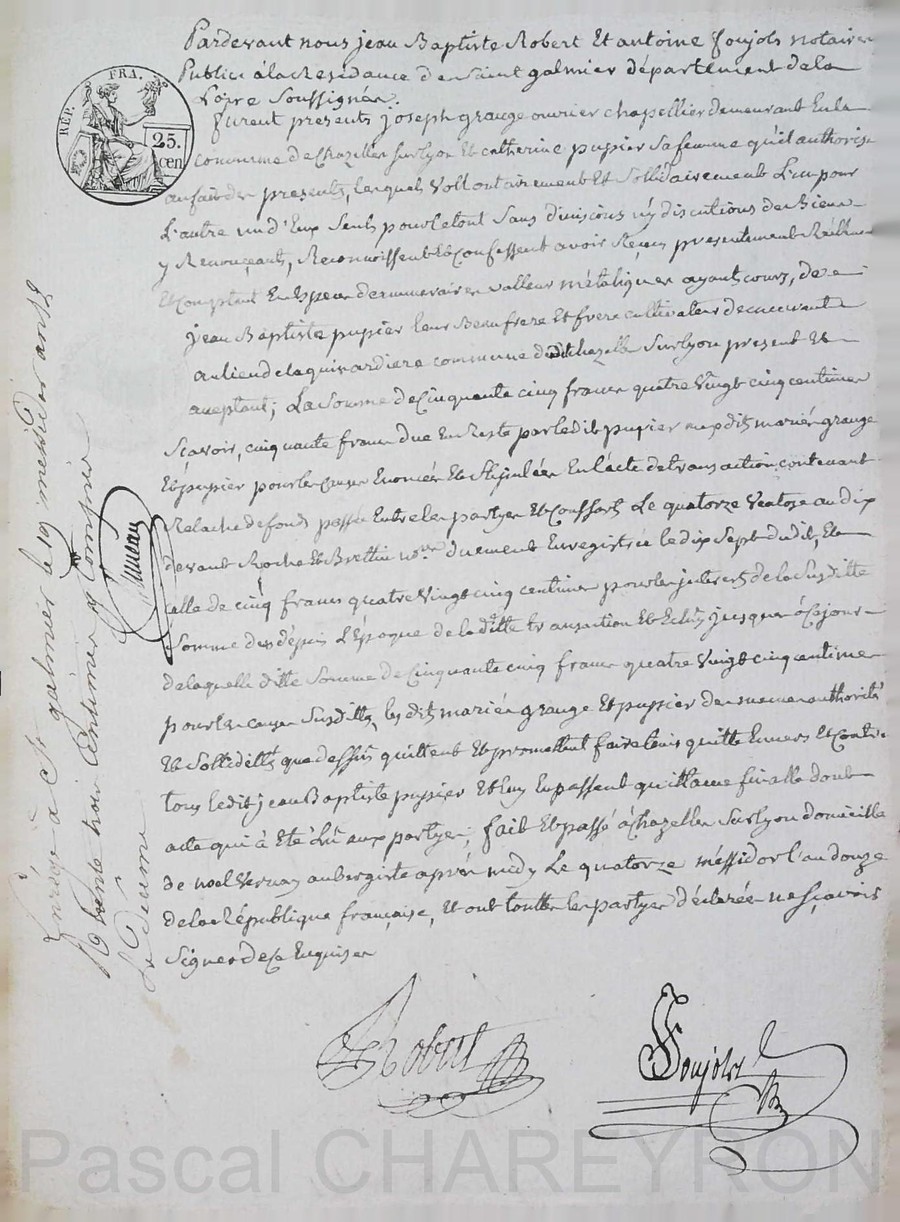 Pardevant nous jean Baptiste Robert Et antoine foujols notaires
Publics à la Residance de Saint galmier département de la
Loire Soussignés.
furent presents joseph grange ouvrier chapellier demeurant En la
commune de chazelles sur lyon Et catherine pupier sa femme qu'il authorise
au fait des presents, lesquels vollontairement Et Sollidairement L'un pour
L'autre un d'Eux Seuls pour le tout Sans divisions ny discutions de Biens
y Renonçants, Reconnoissent Et Confessent avoir Reçus presentement Réellement
Et Comptant En Espece de numeraires valleur métalique ayant cours, de
jean Baptiste pupier leur Beaufrere Et frere cultivateur demeurant
au lieu de la guinardiere commune dudit chazelles Sur lyon present Et
aceptant; La Somme de Cinquante cinq francs quatre Vingt cinq centimes
Sçavoir, cinquante francs due En Reste par ledit pupier auxdits mariés grange
Et pupier pour les causes Enoncées Et Stipulées En l'acte de transaction, contenant
Relache de fond passée Entre les partyes Et Conssorts Le quatorze Ventose an dix
devant Roche Et Brettin nores duement Enregistrée le dix Sept dudit, Et
celle de cinq francs quatre Vingt cinq centimes pour les interets de la Susditte
Somme dus dépuis L'Epoque de laditte transaction Et Echus jusques à Ce jour
de laquelle ditte Somme de Cinquante cinq francs quatre Vingt cinq centimes
pour les causes Susdittes, les dits mariés grange Et pupier des memes authorité
Et Sollidité que dessus quittent Et promettent faire tenir quitte Envers Et Contre
tous ledit jean Baptiste pupier Et luy En passent quittance finalle dont
acte qui à Eté Lû aux partyes; fait Et passé à chazelles Sur lyon domicille
de noel Vernay aubergiste aprés midy Le quatorze méssidor l'an douze
de la République française, Et ont touttes les partyes déclarées ne sçavoir
Signer de Ce Enquises
Robert
Foujols
RÉP. FRA.
25.
cen.
Enrégé à St galmier le 19 messidor an 12
Reçu trente trois centimes y Compris
Le Decime
Pascal CHAREYRON